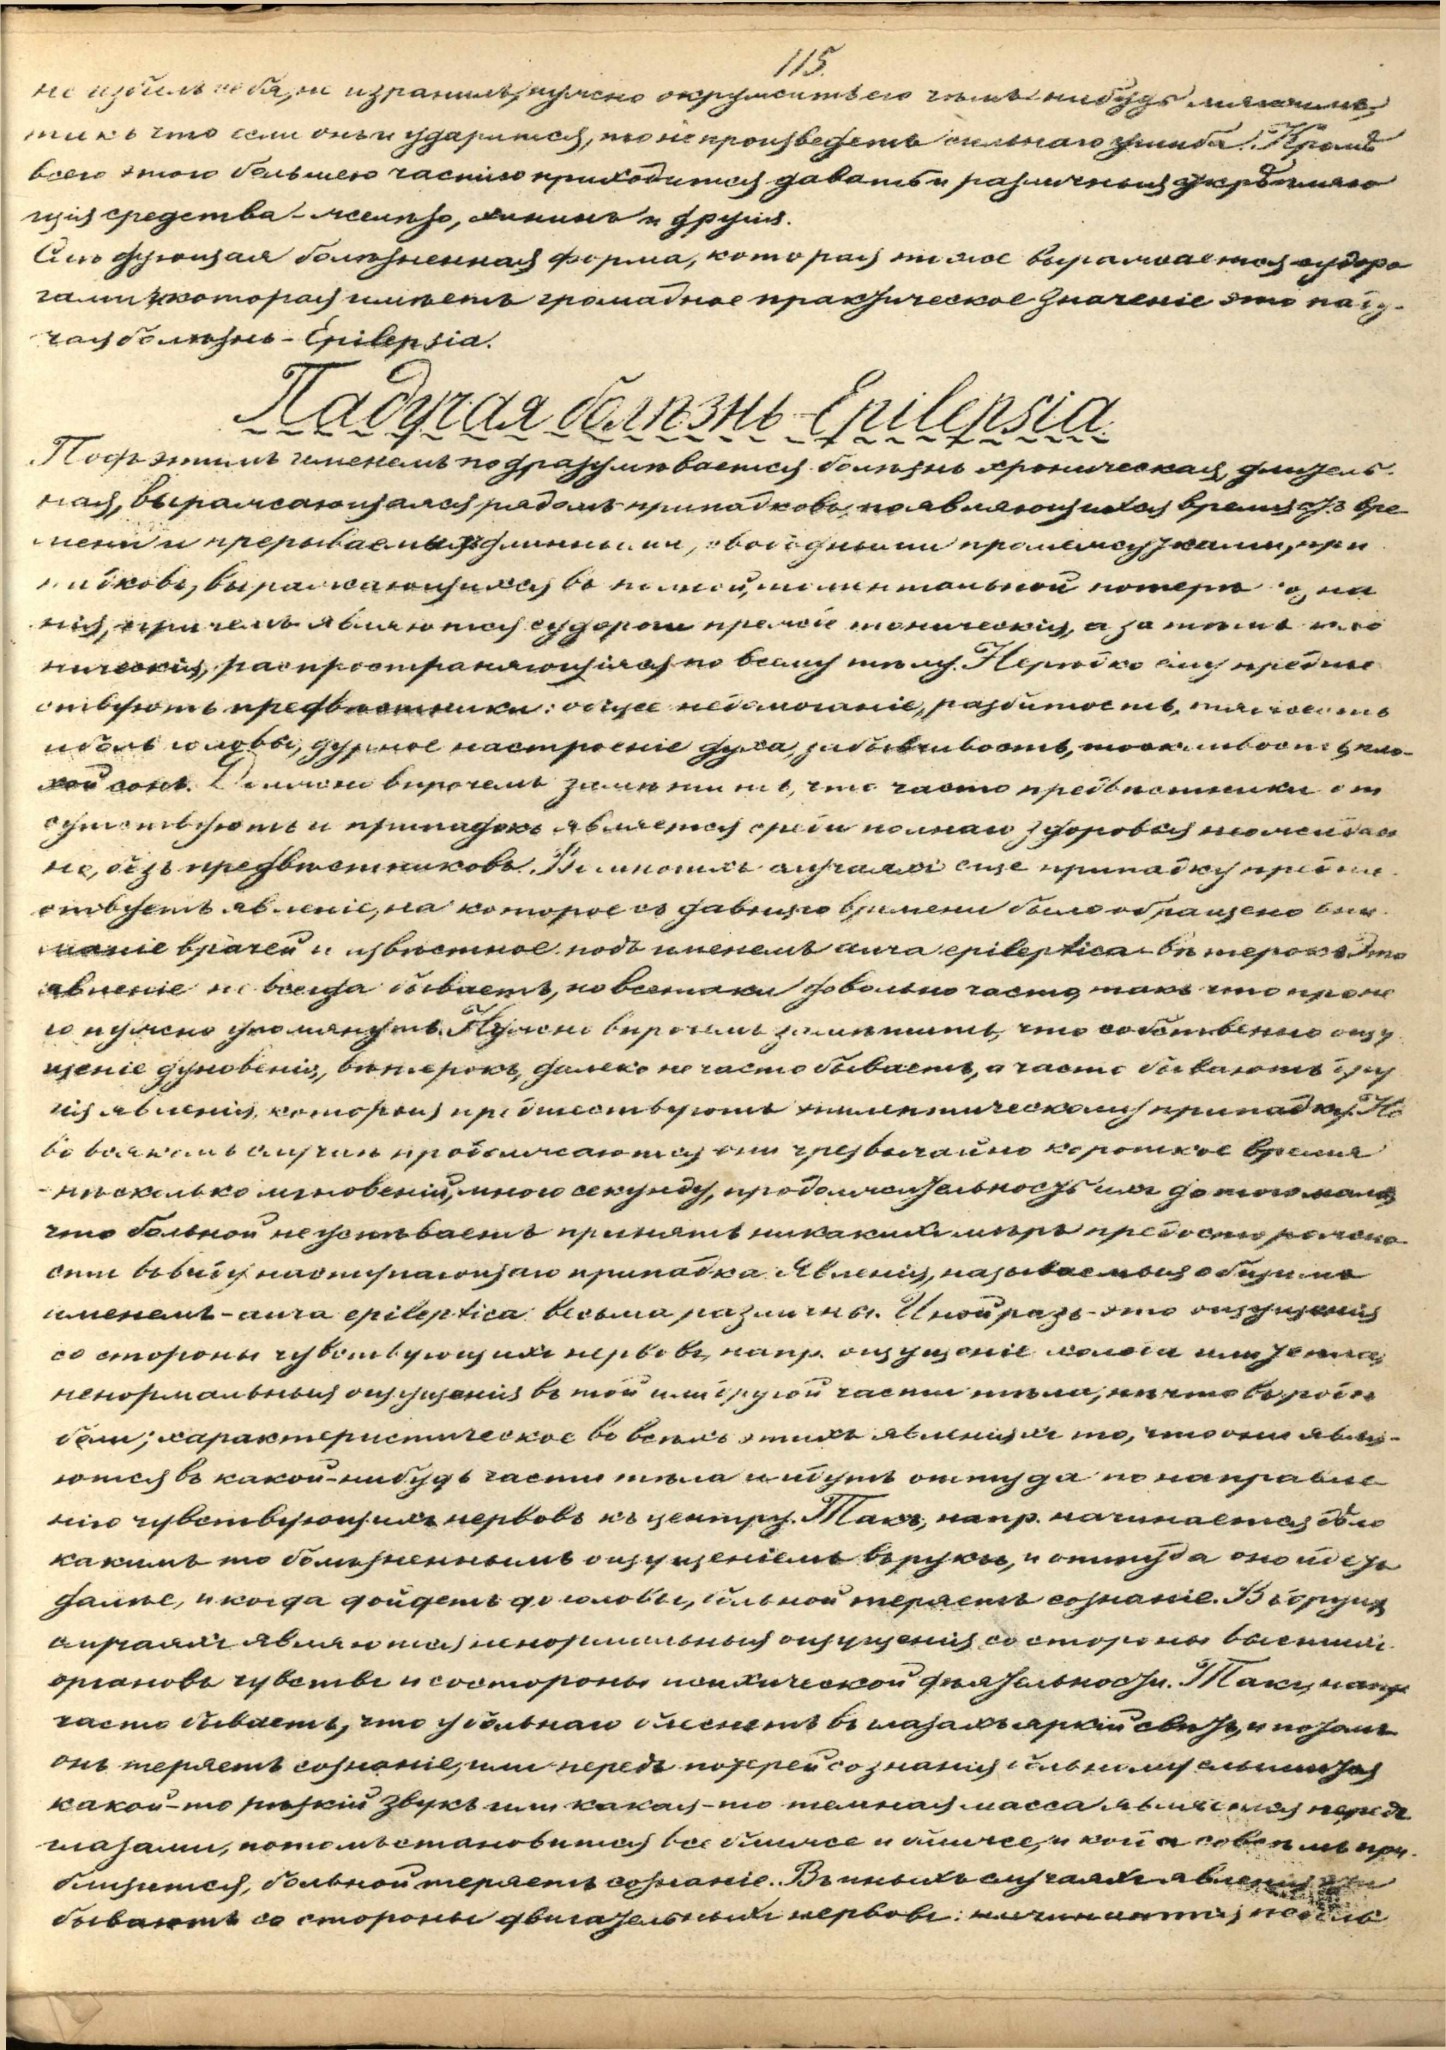 115.
не избилъ себя, не изранилъ, нужно окружить его чѣмъ нибудь мягкимъ,
такъ что если онъ и ударится, то не произведетъ сильнаго ушиба. Кромѣ
всего этого большею частію приходится давать и различныя укрѣпляю
щія средства - желѣзо, хининъ и другія.
Слѣдующая болѣзненная форма, которая также выражается судоро
гами и которая имѣетъ громадное практическое значеніе это паду-
чая болѣзнь - Epilepsia.
Падучая болѣзнь - Epilepsia.
Подъ этимъ именемъ подразумѣвается болѣзнь хроническая, длитель-
ная, выражающаяся рядомъ припадковъ, появляющихся время отъ вре
мени и прерываемыхъ длинными, свободными промежутками, при
падковъ, выражающихся въ полной, моментальной потерѣ созна
нія, причемъ являются судороги прежде тоническія, а затѣмъ кло
ническія, распространяющіяся по всему тѣлу. Нерѣдко ему предше
ствуютъ предвѣстники: общее недомоганіе, разбитость, тяжесть
и боль головы, дурное настроеніе духа, забывчивость, тоскливость, пло-
хой сонъ. Должно впрочемъ замѣтить, что часто предвѣстники от
сутствуютъ и припадокъ является среди полнаго здоровья неожидан
но, безъ предвѣстниковъ. Во многихъ случаяхъ еще припадку предше
ствуетъ явленіе, на которое съ давняго времени было обращено вни
маніе врачей и извѣстное подъ именемъ aura epileptica - вѣтерокъ. Это
явленіе не всегда бываетъ, но всетаки довольно часто, такъ что про не
го нужно упомянуть. Нужно впрочемъ замѣтить, что собственно ощу
щеніе дуновенія, вѣтерокъ, далеко не часто бываетъ, а часто бываютъ дру
гія явленія, которыя предшествуютъ эпилептическому припадку. Но
во всякомъ случаѣ продолжаются они чрезвычайно короткое время
- нѣсколько мгновеній, много секунду, продолжительность ихъ до того мала,
что больной не успѣваетъ принять никакихъ мѣръ предосторожно
сти въ виду наступающаго припадка. Явленія, называемыя общимъ
именемъ - aura epileptica весьма различны. Иной разъ - это ощущенія
со стороны чувствующихъ нервовъ, напр. ощущеніе холода или тепла,
ненормальныя ощущенія въ той или другой части тѣла, нѣчто въ родѣ
боли; характеристическое во всѣхъ этихъ явленіяхъ то, что они явля-
ются въ какой-нибудь части тѣла и идутъ оттуда по направле
нію чувствующихъ нервовъ къ центру. Такъ, напр. начинается дѣло
какимъ то болѣзненнымъ ощущеніемъ въ рукѣ, и оттуда оно идетъ
далѣе, и когда дойдетъ до головы, больной теряетъ сознаніе. Въ другихъ
случаяхъ являются ненормальныя ощущенія со стороны высшихъ
органовъ чувствъ и со стороны психической дѣятельности. Такъ, напр.
часто бываетъ, что у больнаго блеснетъ въ глазахъ яркій свѣтъ, и потомъ
онъ теряетъ сознаніе, или передъ потерей сознанія больному слышится
какой-то рѣзкій звукъ или какая-то темная масса является передъ
глазами, потомъ становится все ближе и ближе, и когда совсѣмъ при-
близится, больной теряетъ сознаніе. Въ иныхъ случаяхъ явленія эти
бываютъ со стороны двигательныхъ нервовъ: